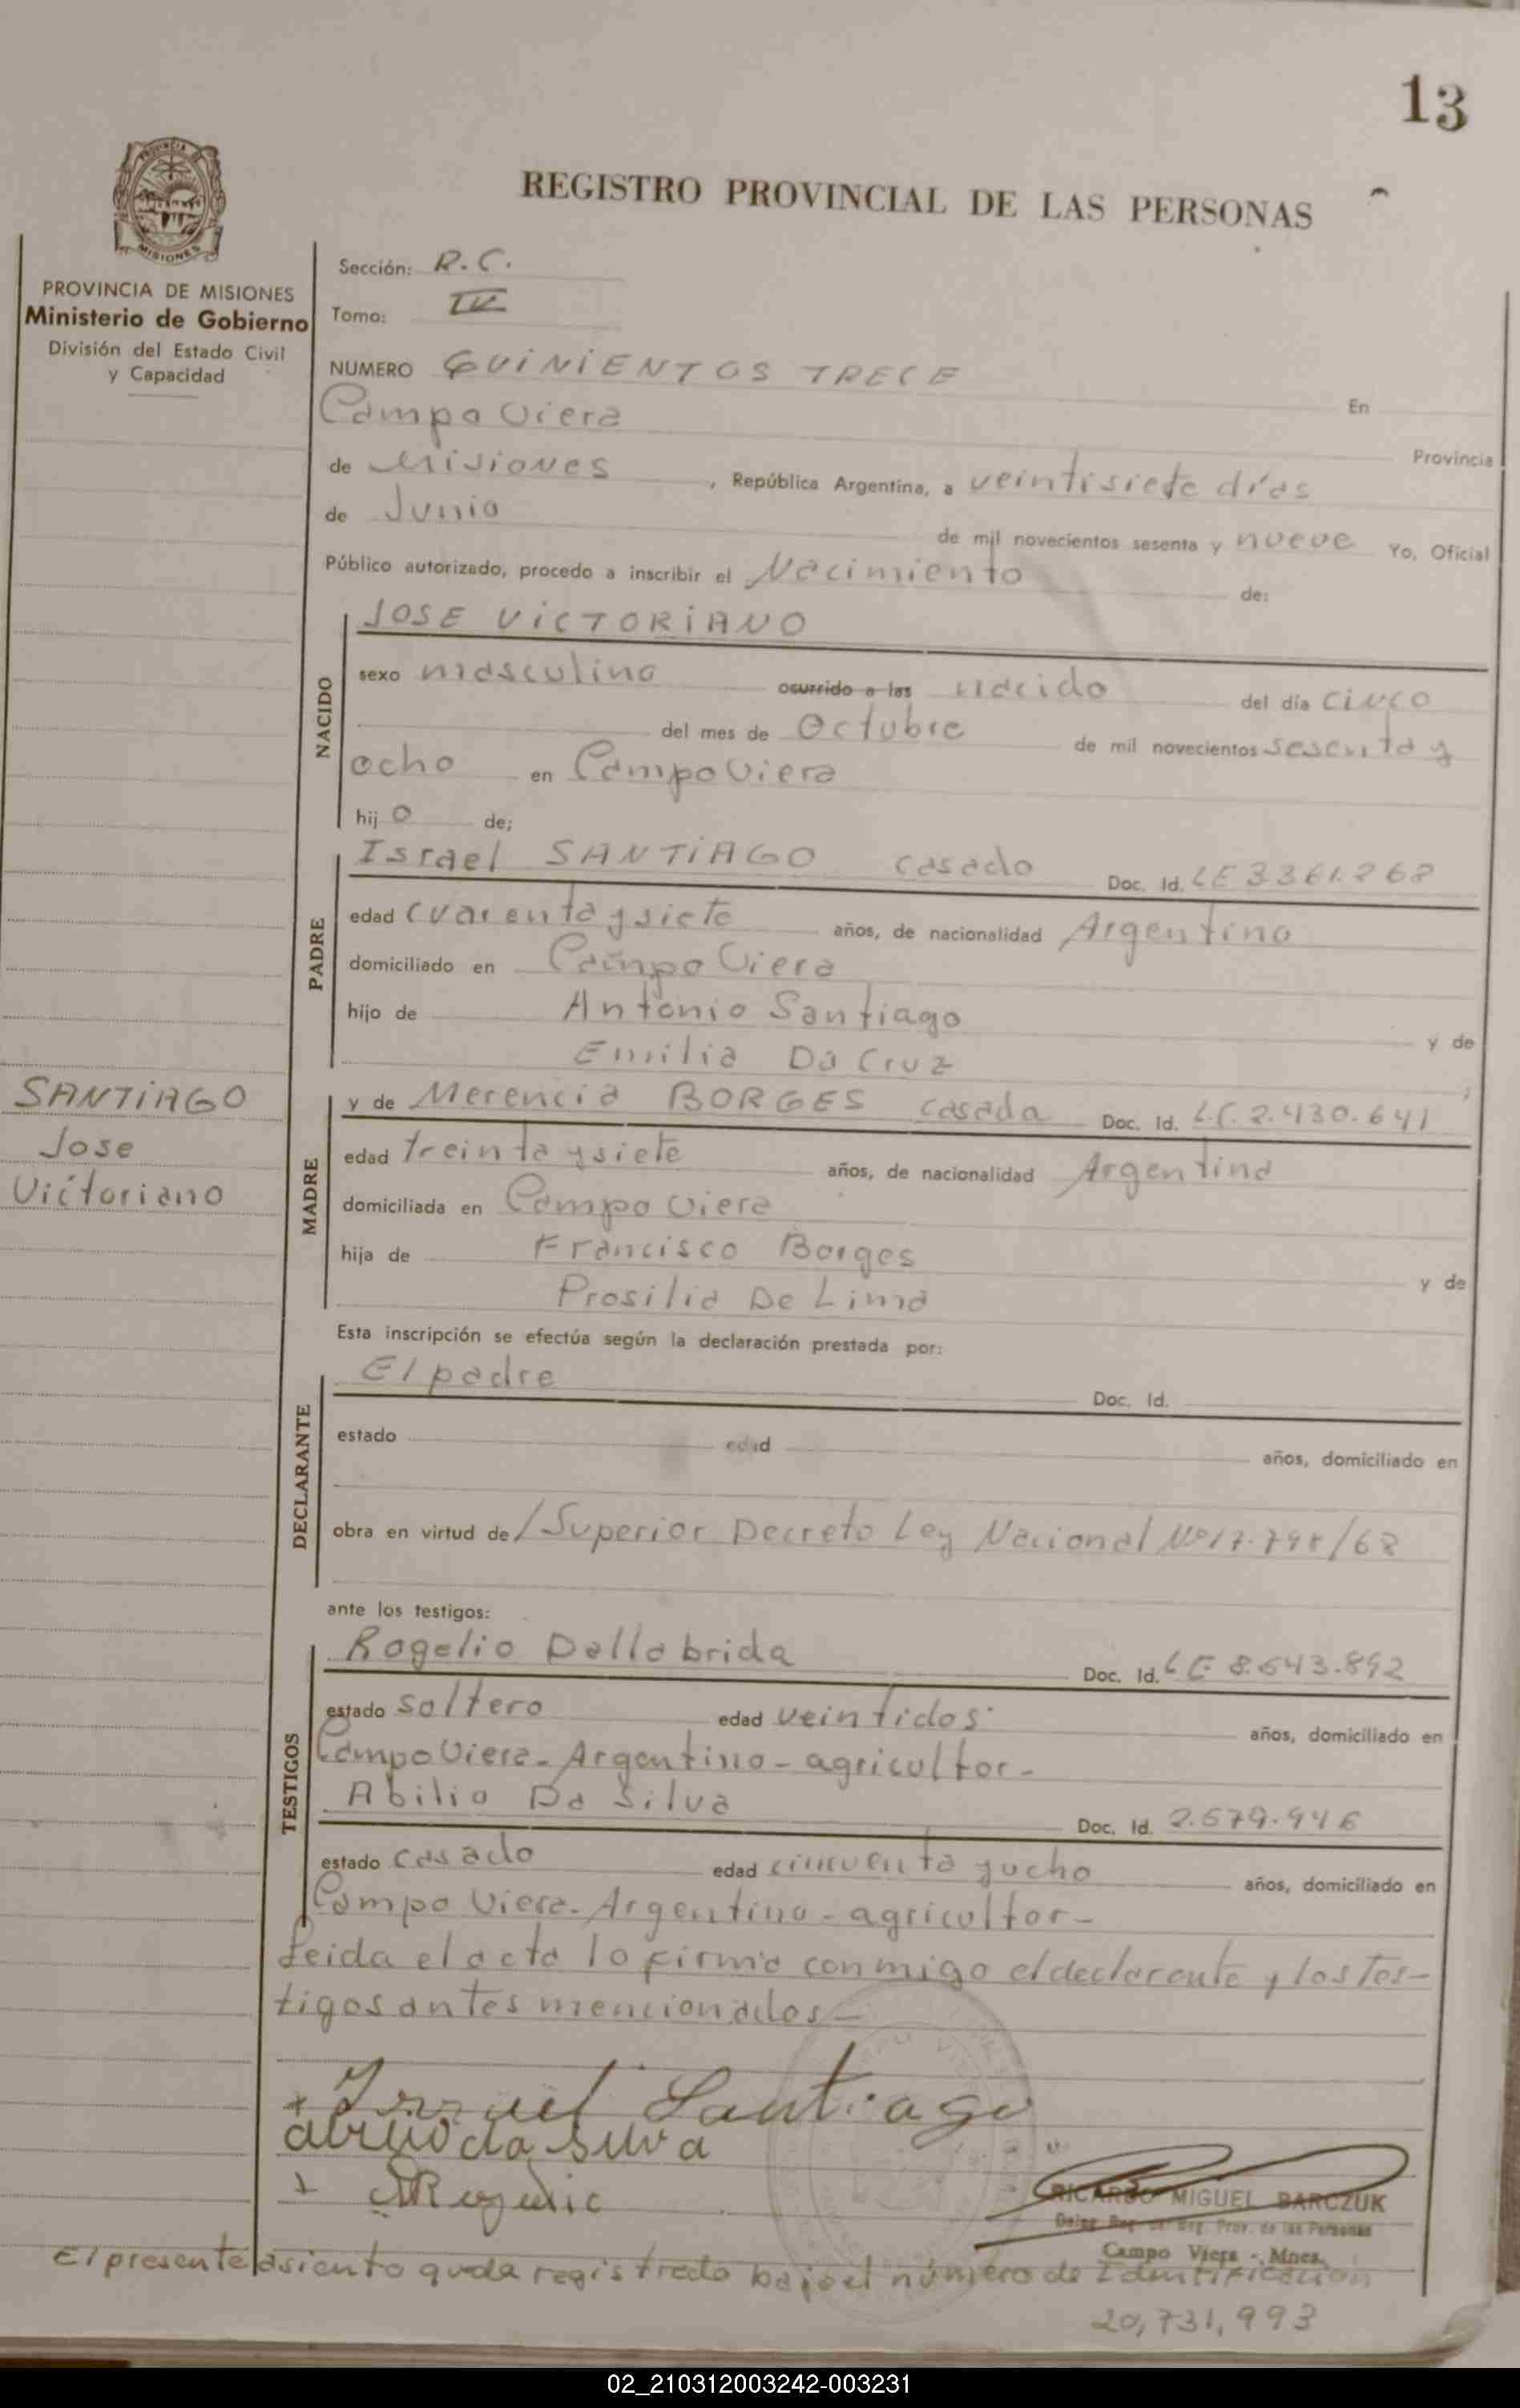 13
REGISTRO PROVINCIAL DE LAS PERSONAS
PROVINCIA MISIONES
PROVINCIA DE MISIONES
Ministerio de Gobierno
División del Estado Civil
y Capacidad
Sección: R.C.
Tomo: IV
NUMERO QUINIENTOS TRECE En
Campo Viera Provincia
de Misiones, República Argentina, a veintisiete días
de Junio de mil novecientos sesenta y nueve Yo, Oficial
Público autorizado, procedo a inscribir el Nacimiento de:
NACIDO
JOSE VICTORIANO
sexo masculino ocurrido a las nacido del día cinco
del mes de Octubre de mil novecientos sesenta y
ocho en Campo Viera
hijo de;
PADRE
Israel SANTIAGO casado Doc. Id. LE 3361.268
edad cuarenta y siete años, de nacionalidad Argentino
domiciliado en Campo Viera
hijo de Antonio Santiago y de
Emilia Da Cruz
SANTIAGO
Jose
Victoriano
MADRE
y de Merencia BORGES casada Doc. Id. L.C. 2.430.641
edad treinta y siete años, de nacionalidad Argentina
domiciliada en Campo Viera
hija de Francisco Borges y de
Prosilia De Lima
Esta inscripción se efectúa según la declaración prestada por:
DECLARANTE
El padre Doc. Id.
estado edad años, domiciliado en
obra en virtud de / Superior Decreto Ley Nacional Nº 17.798/68
ante los testigos:
TESTIGOS
Rogelio Dallabrida Doc. Id. LE 8.543.892
estado soltero edad veintidos años, domiciliado en
Campo Viera - Argentino - agricultor -
Abilio Da Silva Doc. Id. 2.579.946
estado casado edad cincuenta y ocho años, domiciliado en
Campo Viera - Argentino - agricultor -
Leida el acta lo firma conmigo el declarante y los tes-
tigos antes mencionados -
Israel Santiago
abilio da silva
RICARDO MIGUEL BARCZUK
Deleg. Reg. Prov. de las Personas
Campo Viera - Mnes.
El presente asiento queda registrado bajo el número de Identificacion
20,731,993
02_210312003242-003231